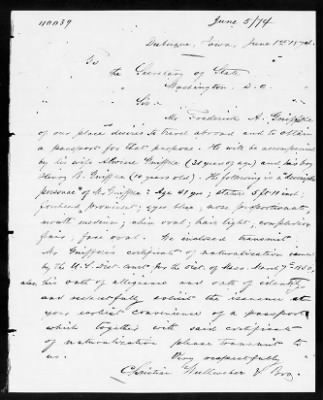 40039
June 5/74
Dubuque, Iowa, June 1st 1874.
To
the Secretary of State
Washington D. C.
Sir.
Mr Frederick A. Gniffke
of our place desires to travel abroad and to obtain
a passport for that purpose. He will be accompanied
by his wife Gniffke (38 years of age) and his boy
Henry B. Gniffke (10 years old). The following is a description
of Mr. Gniffke: Age 41 yrs; stature 5 ft 10 inch;
forehead prominent; eyes blue, nose proportionate,
mouth medium; chin oval; hair light, complexion
fair; face oval. We inclosed transmit
Mr Gniffke's certificate of naturalization issued
by the U. S. Dist. Court for the Dist. of
also, his oath of allegiance and oath of identity
and respectfully solicit the issuance at
your earliest convenience of a passport
which together with said certificate
of naturalization please transmit to
us.
Very respectfully
Christian Wullweber & Bro.